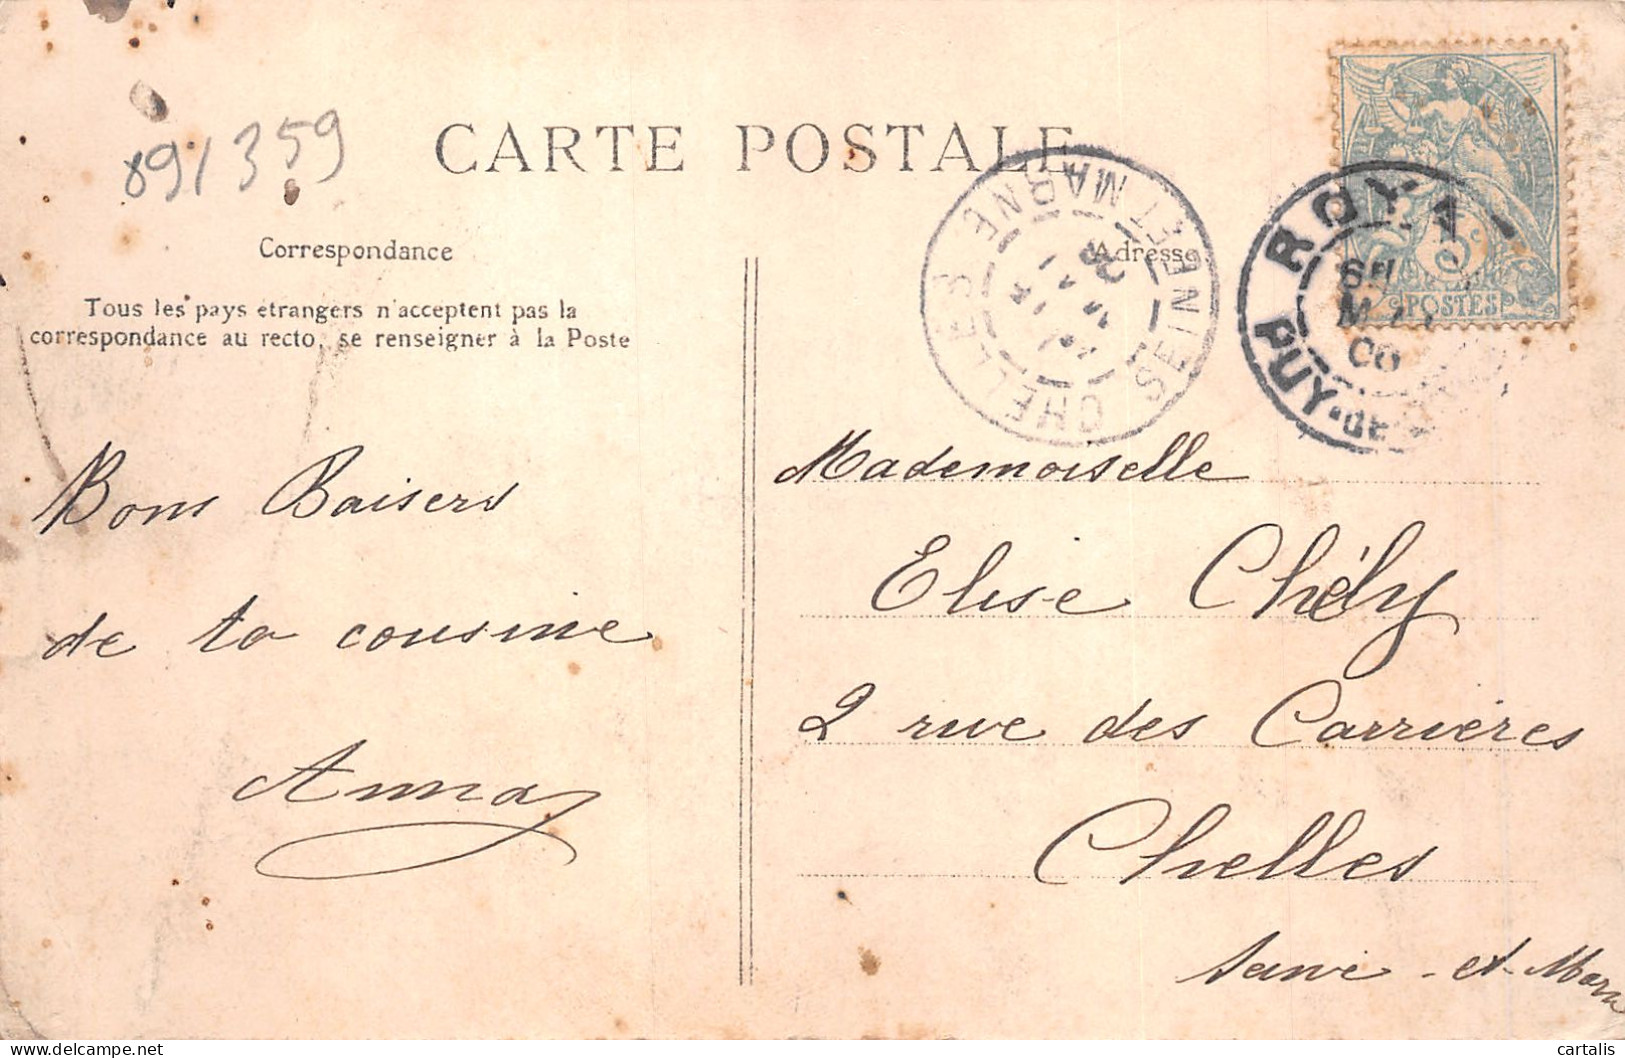 891359
CARTE POSTALE
Correspondance
Tous les pays etrangers n'acceptent pas la
correspondance au recto, se renseigner à la Poste
Bons Baisers
de ta cousine
Anna
Adresse
CHELLES
SEINE ET MARNE
ROYAT
PUY-de-
5c
POSTES
Mademoiselle
Elise Chély
2 rue des Carrières
Chelles
Seine-et-Marne
cartalis